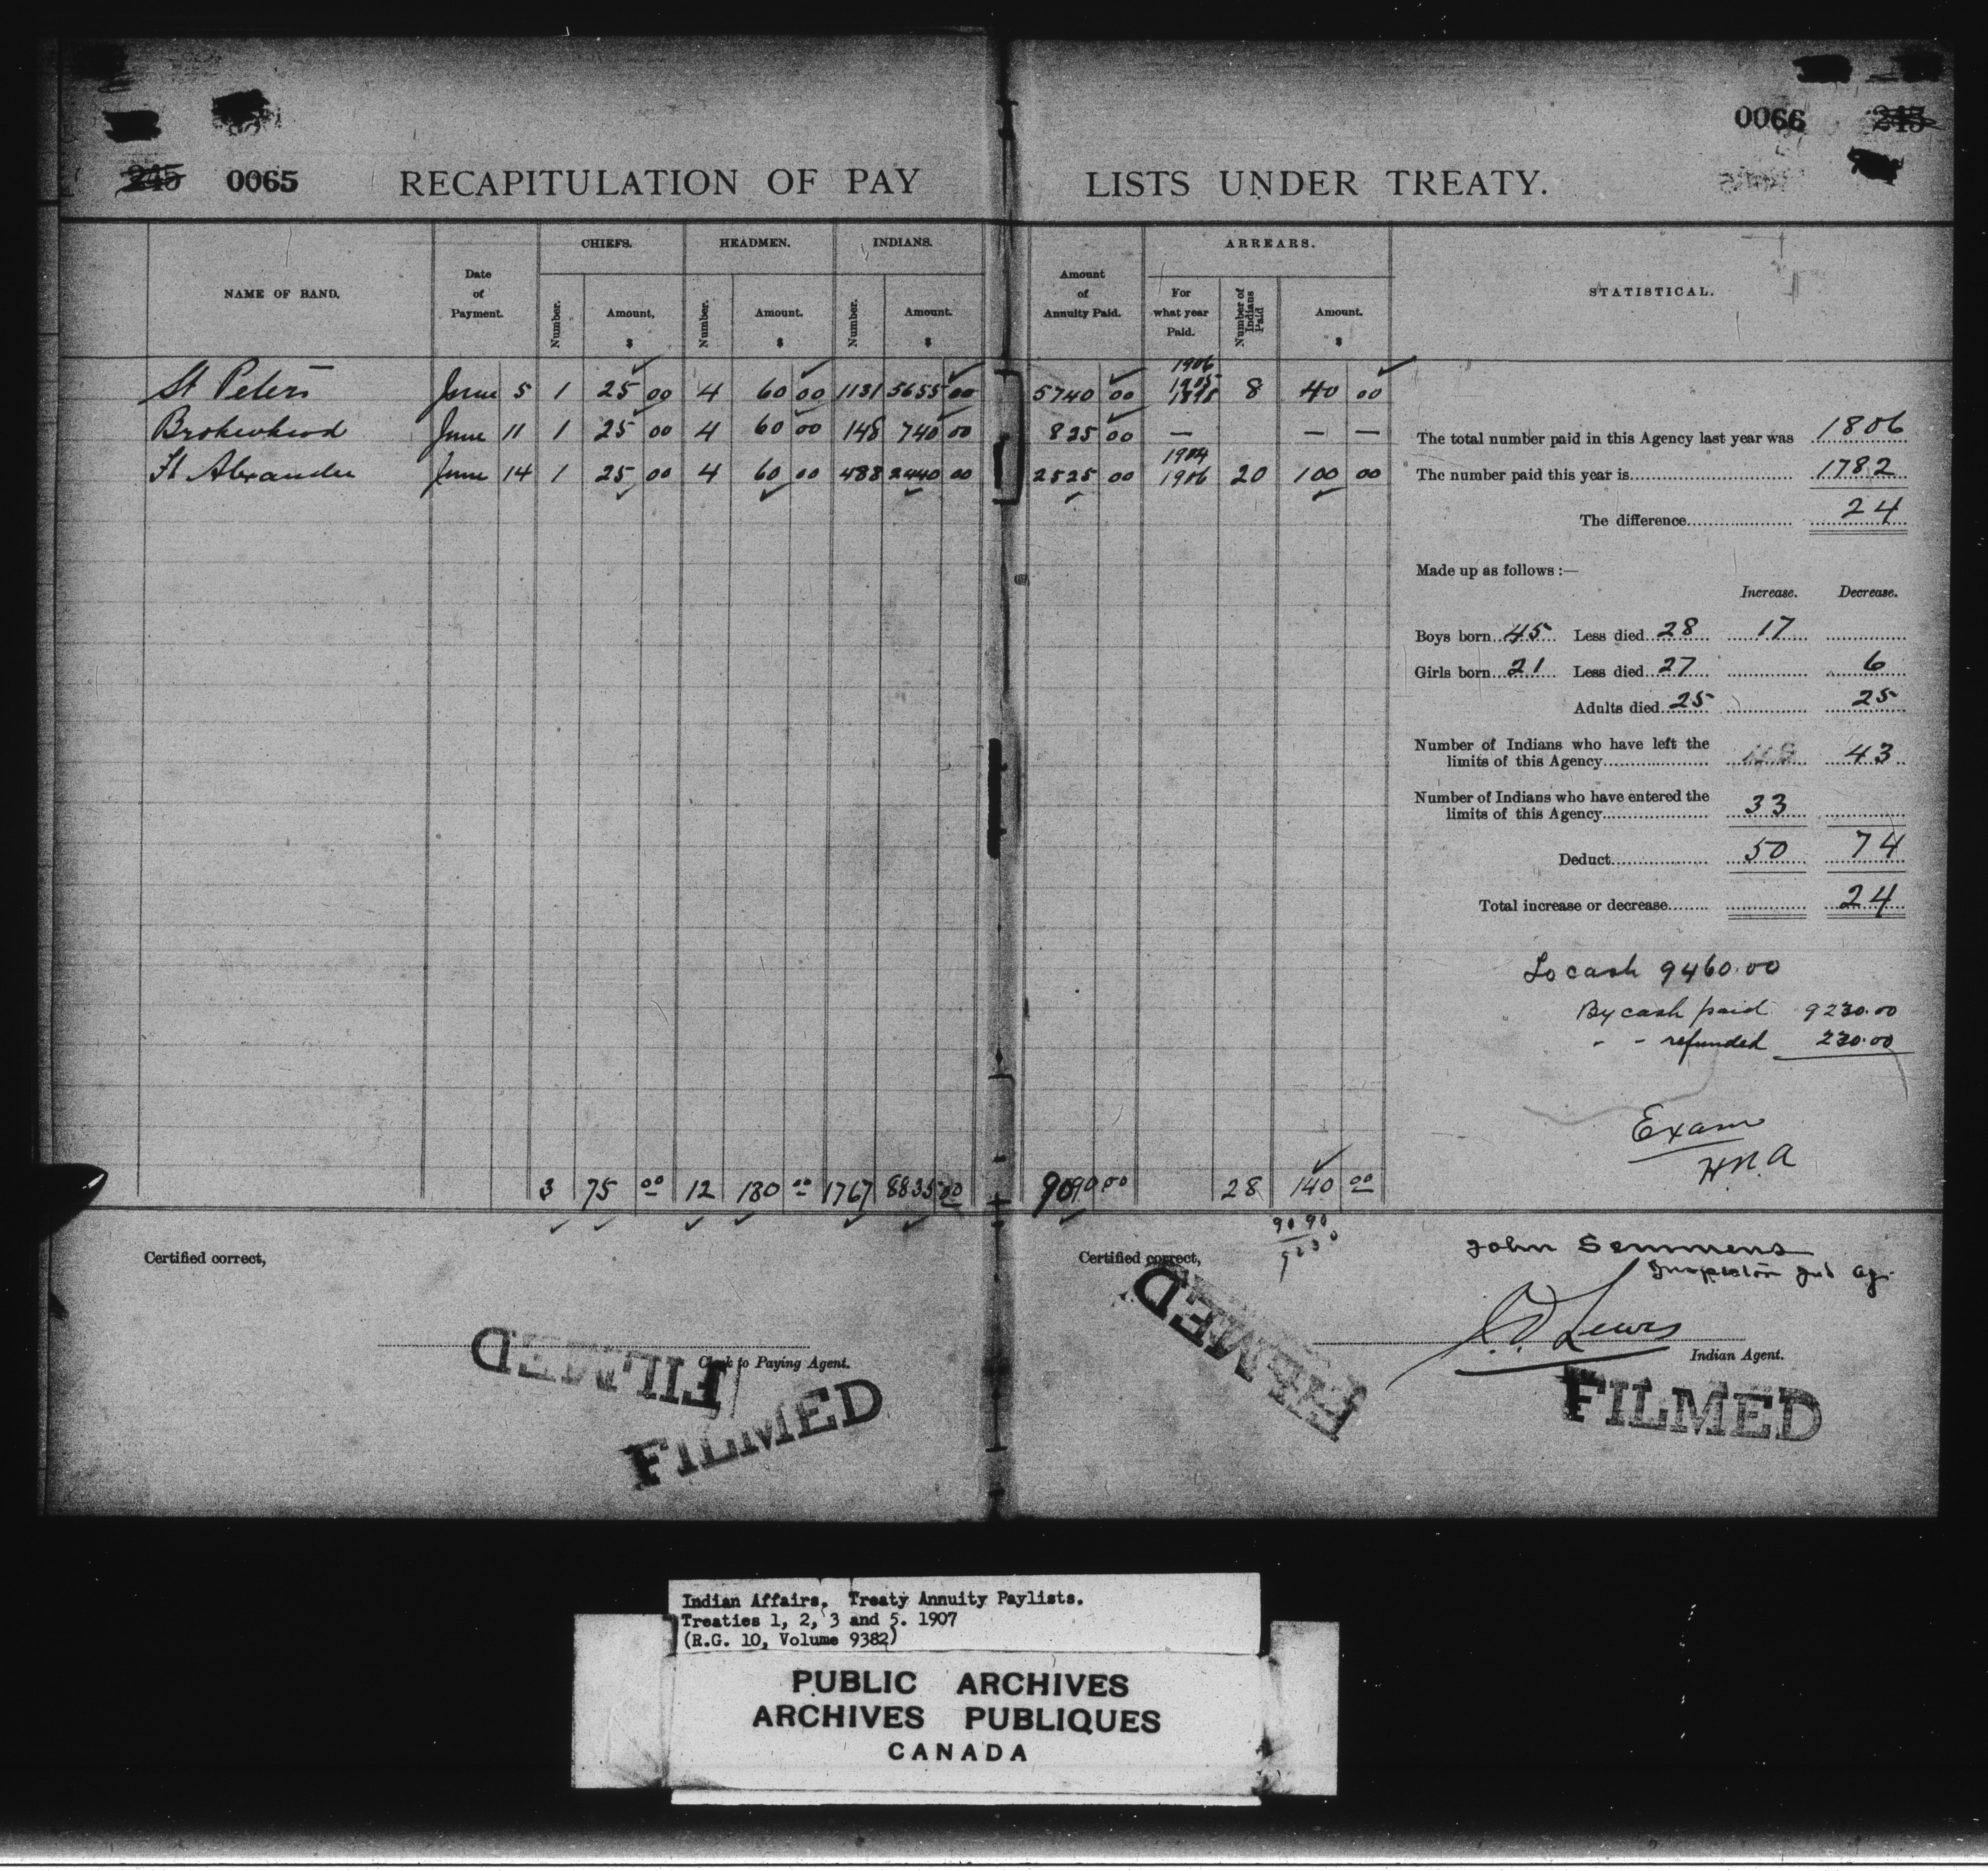 0066 245
245 0065 RECAPITULATION OF PAY LISTS UNDER TREATY.
NAME OF BAND. Date of Payment. CHIEFS. HEADMEN. INDIANS. Amount of Annuity Paid. ARREARS. STATISTICAL.
Number. Amount, $ Number. Amount. $ Number. Amount. $ For what year Paid. Number of Indians Paid Amount. $
St Peters June 5 1 25 00 4 60 00 1131 5655 00 5740 00 1906 1905 1898 8 40 00
Brokenhead June 11 1 25 00 4 60 00 148 740 00 825 00 — — —
Ft Alexander June 14 1 25 00 4 60 00 488 2440 00 2525 00 1904 1906 20 100 00
The total number paid in this Agency last year was 1806
The number paid this year is 1782
The difference 24
Made up as follows :—
Increase. Decrease.
Boys born 45 Less died 28 17
Girls born 21 Less died 27 6
Adults died 25 25
Number of Indians who have left the
limits of this Agency 43
Number of Indians who have entered the
limits of this Agency 33
Deduct 50 74
Total increase or decrease 24
To cash 9460.00
By cash paid 9230.00
" " refunded 230.00
Exam
H.R.A
3 75 00 12 180 00 1767 8835 00 9090 00 28 140 00
90 90
9230
Certified correct,
Clerk to Paying Agent.
FILMED
FILMED
Certified correct,
John Semmens
Inspector Ind Ag.
J.O. Lewis
Indian Agent.
FILMED
FILMED
Indian Affairs. Treaty Annuity Paylists.
Treaties 1, 2, 3 and 5. 1907
(R.G. 10, Volume 9382)
PUBLIC ARCHIVES
ARCHIVES PUBLIQUES
CANADA